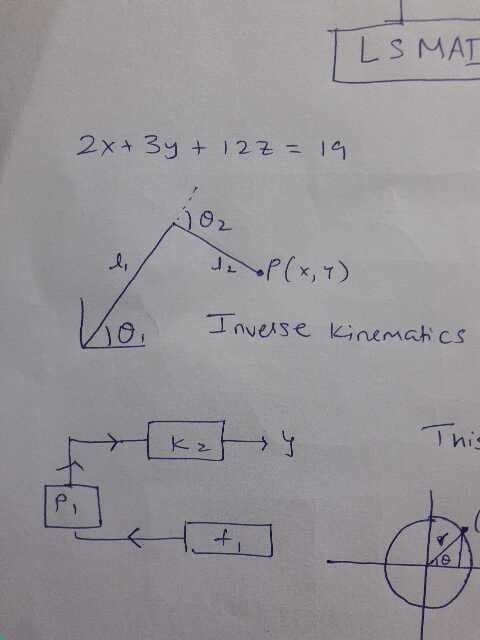 LS MAT
2x + 3y + 12z = 19
θ2
l1
l2
P(x, y)
θ1
Inverse kinematics
K2
y
This
P1
f1
r
θ